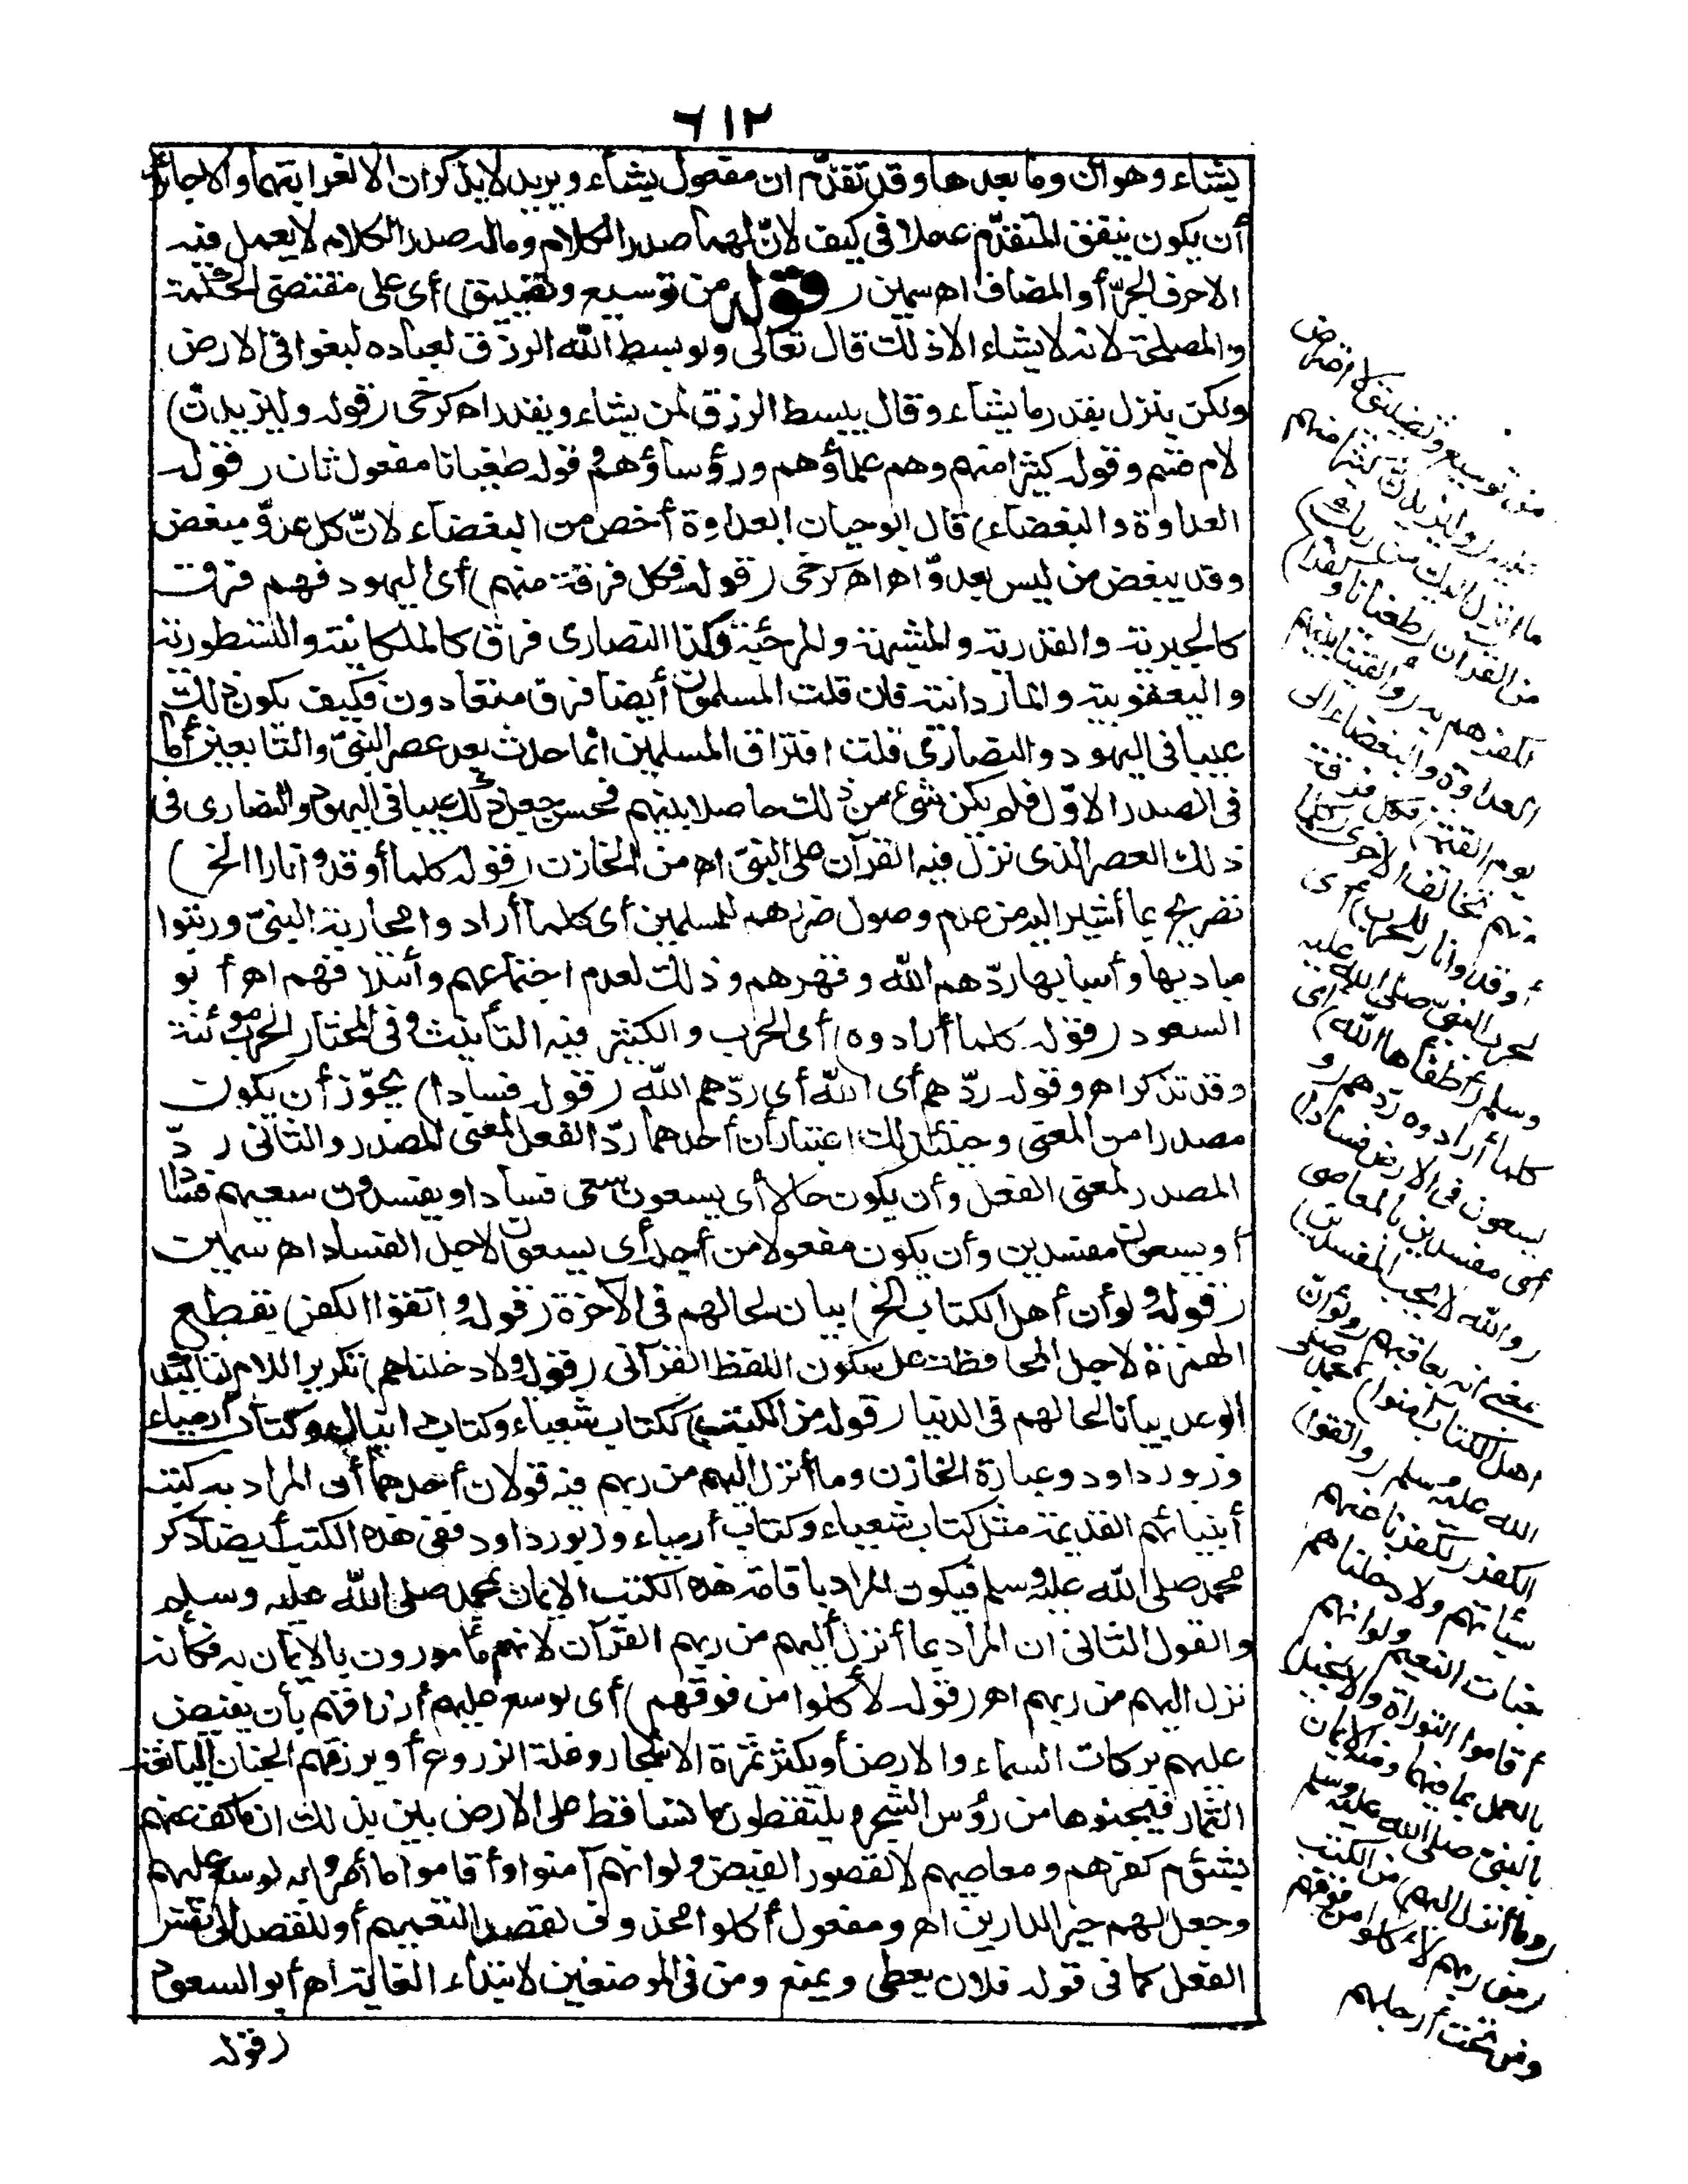 ٦١٢
يشاء وهو أن وما بعدها وقد تقدّم ان مفعول يشاء ويريد لا يذكران الا لغرابتهما والا جائز
أن يكون ينفق المتقدّم عملا فى كيف لانّ لهما صدر الكلام وماله صدر الكلام لا يعمل فيه
الاحرف الجرّ أو المضاف اه سمين (قوله من توسيع وتضييق) أى على مقتضى الحكمة
والمصلحة لانه لا يشاء الا ذلك قال تعالى ولو بسط الله الرزق لعباده لبغوا فى الارض
ولكن ينزل بقدر ما يشاء وقال يبسط الرزق لمن يشاء ويقدر اه كرخى (قوله وليزيدن)
لام قسم وقوله كثيرا منهم وهم علماؤهم ورؤساؤهم وقوله طغيانا مفعول ثان (قوله
العداوة والبغضاء) قال ابو حيان العداوة أخص من البغضاء لانّ كل عدوّ مبغض
وقد يبغض من ليس بعدوّ اه اه كرخى (قوله فكل فرقة منهم) أى اليهود فهم فرق
كالجبرية والقدرية والمشبهة والمرجئة وكذا النصارى فرق كالملكانية والنسطورية
واليعقوبية والماردانية فان قلت المسلمون أيضا فرق متعادون فكيف يكون ذلك
عيبا فى اليهود والنصارى قلت افتراق المسلمين انما حدث بعد عصر النبىّ والتابعين أما
فى الصدر الاوّل فلم يكن شئ من ذلك حاصلا بينهم فحسن جعل ذلك عيبا فى اليهود والنصارى فى
ذلك العصر الذى نزل فيه القرآن على النبىّ اه من الخازن (قوله كلما أوقدوا نارا الخ)
تصريح بما أشير اليه من عدم وصول ضررهم للمسلمين أى كلما أرادوا محاربة النبىّ ورتبوا
مباديها وأسبابها ردّهم الله وقهرهم وذلك لعدم اجتماعهم وأئتلافهم اه أبو
السعود (قوله كلما أرادوه) أى الحرب والكثير فيه التأنيث وفى المختار الحرب مؤنثة
وقد تذكر اه وقوله ردّهم أى الله أى ردّهم الله (قوله فسادا) يجوّز أن يكون
مصدرا من المعنى وحينئذ لك اعتباران أحدهما ردّ الفعل لمعنى المصدر والثانى ردّ
المصدر لمعنى الفعل وأن يكون حالا أى يسعون سعى فساد او يفسدون سعيهم فسادا
أو يسعون مفسدين وأن يكون مفعولا من أجله أى يسعون لاجل الفساد اه سمين
(قوله ولو أن أهل الكتاب الخ) بيان لحالهم فى الآخرة (قوله واتقوا الكفر) بقطع
الهمزة لاجل المحافظة على سكون اللفظ القرآنى (قوله ولادخلناهم) تكرير اللام لتأكيد
الوعد بيانا لحالهم فى الدنيا (قوله من الكتب) ككتاب شعياء وكتاب دانيال وكتاب أرمياء
وزبور داود وعبارة الخازن وما أنزل اليهم من ربهم فيه قولان أحدهما أن المراد به كتب
أنبيائهم القديمة مثل كتاب شعياء وكتاب أرمياء وزبور داود ففى هذه الكتب أيضا ذكر
محمد صلى الله عليه وسلم فيكون المراد باقامة هذه الكتب الايمان بمحمد صلى الله عليه وسلم
والقول الثانى ان المراد بما أنزل اليهم من ربهم القرآن لانهم مأمورون بالايمان به فكأنه
نزل اليهم من ربهم اه (قوله لأكلوا من فوقهم) أى لوسع عليهم أرزاقهم بأن يفيض
عليهم بركات السماء والارض أو يكثر ثمرة الاشجار وغلة الزروع أو يرزقهم الجنان اليانعة
الثمار فيجنوها من رؤس الشجر ويلتقطون ما تساقط على الارض بين بذلك ان ما كف عنهم
بشؤم كفرهم ومعاصيهم لا لقصور الفيض ولو انهم آمنوا وأقاموا ما أمروا به لوسع عليهم
وجعل لهم خير الدارين اه ومفعول أكلوا محذوف لقصد التعميم أو للقصد الى نفس
الفعل كما فى قوله فلان يعطى ويمنع ومن فى الموضعين لابتداء الغاية اه أبو السعود
(قوله
من توسيع وتضييق لا اعتراض
عليه (وليزيدن كثيرا منهم
ما انزل اليك من ربك)
من القرآن (طغيانا وكفرا)
لكفرهم به (وألقينا بينهم
العداوة والبغضاء الى
يوم القيمة) فكل فرقة
منهم تخالف الاخرى (كلما
أوقدوا نارا للحرب) أى
لحرب النبىّ صلى الله عليه
وسلم (أطفأها الله) أى
كلما أرادوه ردّهم (و
يسعون فى الارض فسادا)
أى مفسدين بالمعاصى
(والله لا يحب المفسدين)
بمعنى انه يعاقبهم (ولو أنّ
اهل الكتاب آمنوا) بمحمد صلى
الله عليه وسلم (واتقوا)
الكفر (لكفرنا عنهم
سيأتهم ولادخلناهم
جنات النعيم ولو انهم
أقاموا التوراة والانجيل)
بالعمل بما فيهما ومنه الايمان
بالنبىّ صلى الله عليه وسلم
(وما أنزل اليهم) من الكتب
(من ربهم لأكلوا من فوقهم
ومن تحت أرجلهم